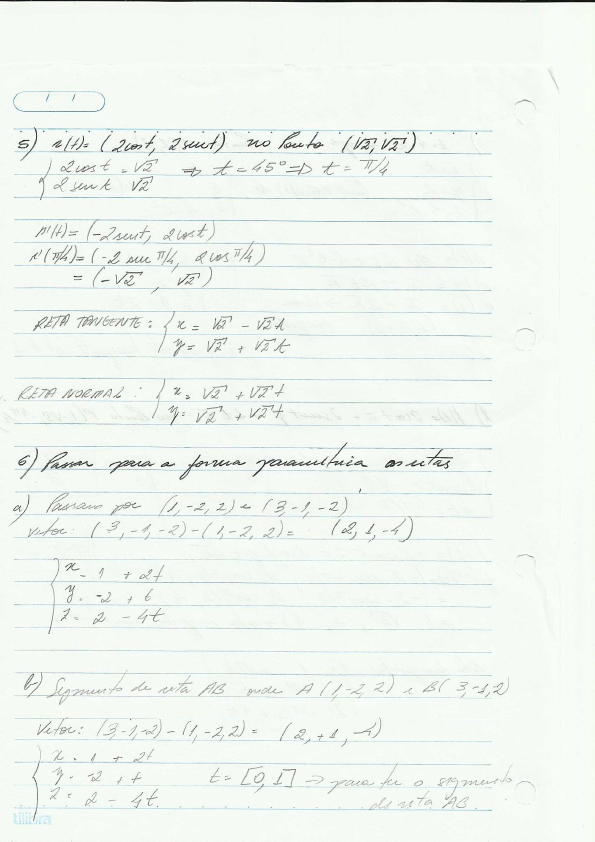 5) r(t) = (2cost, 2sent) no Ponto (√2, √2)
2cost = √2 ⇒ t = 45° ⇒ t = π/4
2sent √2
r'(t) = (-2sent, 2cost)
r'(π/4) = (-2 sen π/4, 2cos π/4)
= (-√2 , √2)
RETA TANGENTE: x = √2 - √2t
y = √2 + √2t
RETA NORMAL: x = √2 + √2t
y = √2 + √2t
6) Passar para a forma paramétrica as retas
a) Passam por (1,-2,2) e (3,-1,-2)
Vetor: (3,-1,-2)-(1,-2,2)= (2,1,-4)
x = 1 + 2t
y = -2 + t
z = 2 - 4t
b) Segmento de reta AB onde A(1,-2,2) e B(3,-1,2)
Vetor: (3,-1,-2)-(1,-2,2)= (2,+1,-4)
x = 1 + 2t
y = -2 + t t = [0,1] ⇒ para ter o segmento
z = 2 - 4t. de reta AB.
tilibra